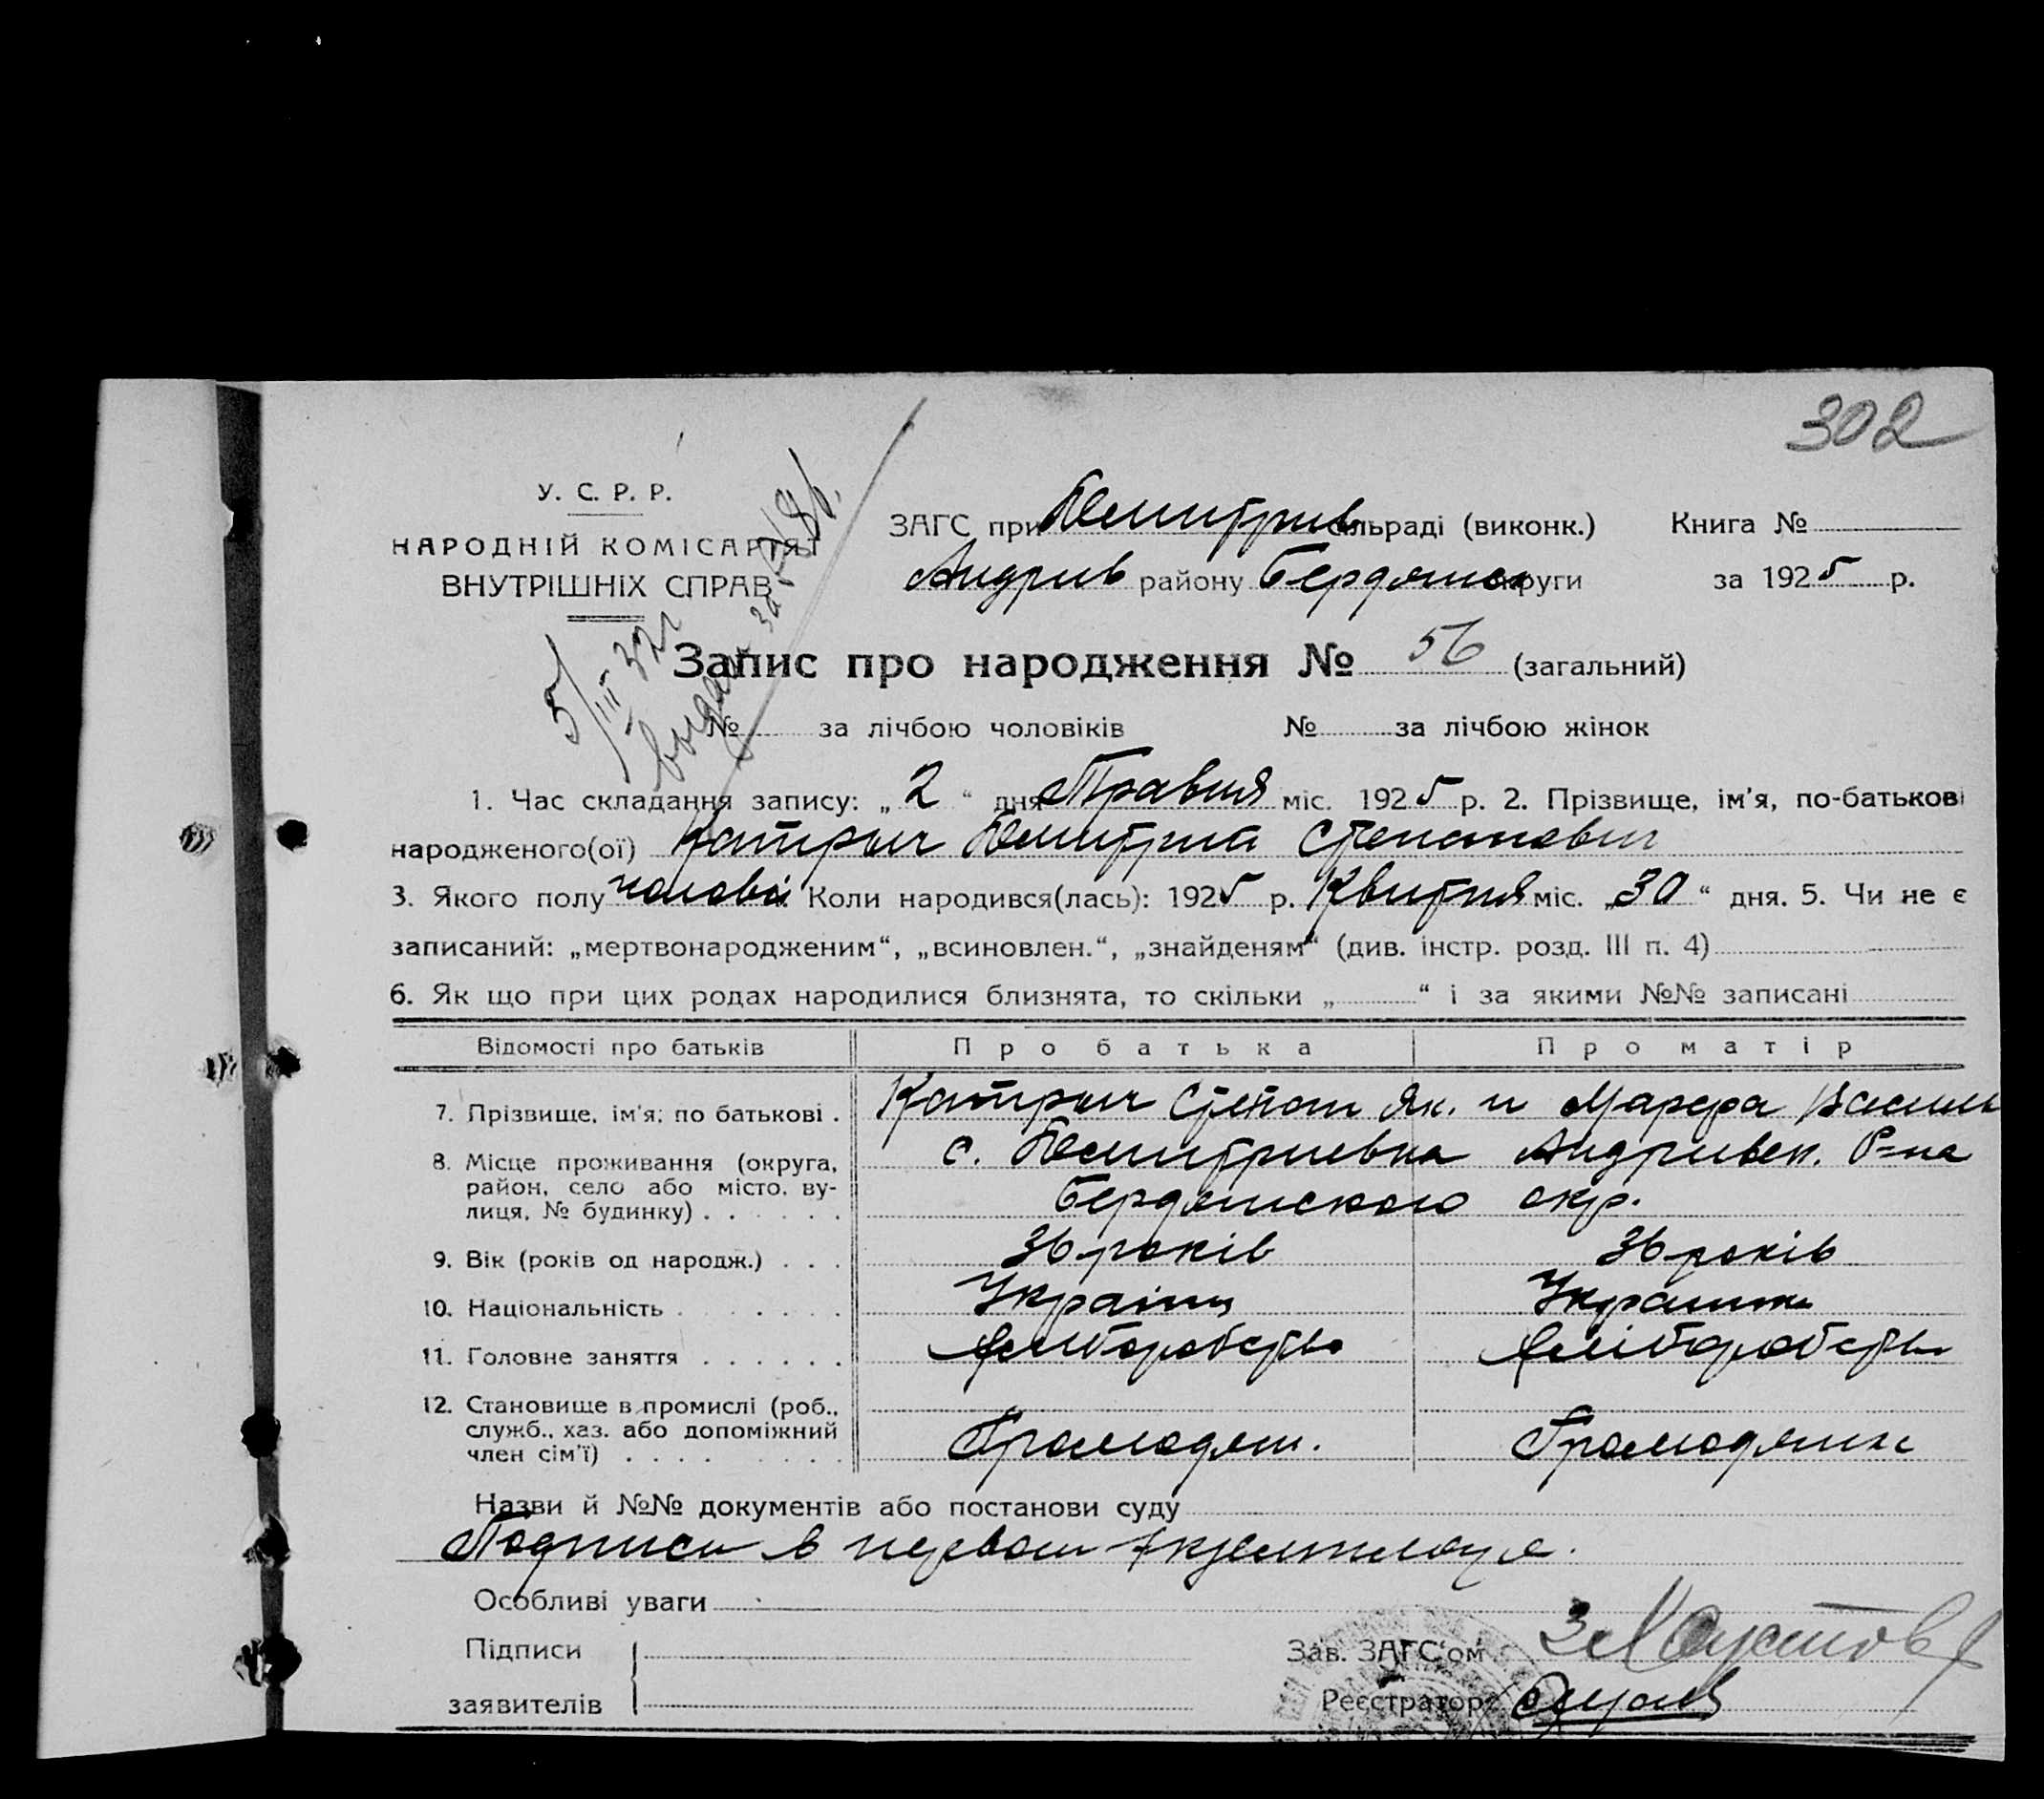 302
У. С. Р. Р.
НАРОДНІЙ КОМІСАРІЯТ
ВНУТРІШНІХ СПРАВ
ЗАГС при Дмитрив сільраді (виконк.) Книга №
Андрив району Бердянск округи за 1925 р.
5/III 32 г
Запис про народження № 56 (загальний)
№ за лічбою чоловіків № за лічбою жінок
1. Час складання запису: „ 2 “ дня Травня міс. 1925 р. 2. Прізвище, ім'я, по-батькові
народженого(ої) Катрыч Дмитрий Степанович
3. Якого полу чолові Коли народився(лась): 1925 р. Квитня міс. „30“ дня. 5. Чи не є
записаний: „мертвонародженим“, „всиновлен.“, „знайденям“ (див. інстр. розд. III п. 4)
6. Як що при цих родах народилися близнята, то скільки „ “ і за якими №№ записані
Відомості про батьків Про батька Про матір
7. Прізвище, ім'я, по батькові . Катрыч Степан Як. и Марфа Василь
8. Місце проживання (округа, с. Дмитриевка Андривск. Р=на
район, село або місто, ву-
лиця, № будинку) . . . . . . Бердянского окр.
9. Вік (років од народж.) . . . 36 років 36 років
10. Національність . . . . . . . Україн Украинка
11. Головне заняття . . . . . . Хлиборобство Хліборобств
12. Становище в промислі (роб.,
служб., хаз. або допоміжний
член сім'ї) . . . . . . . . Громодян. Громодянк
Назви й №№ документів або постанови суду
Подписи в первом экземпляре.
Особливі уваги
Підписи
заявителів
Зав. ЗАГС'ом
Реєстратор